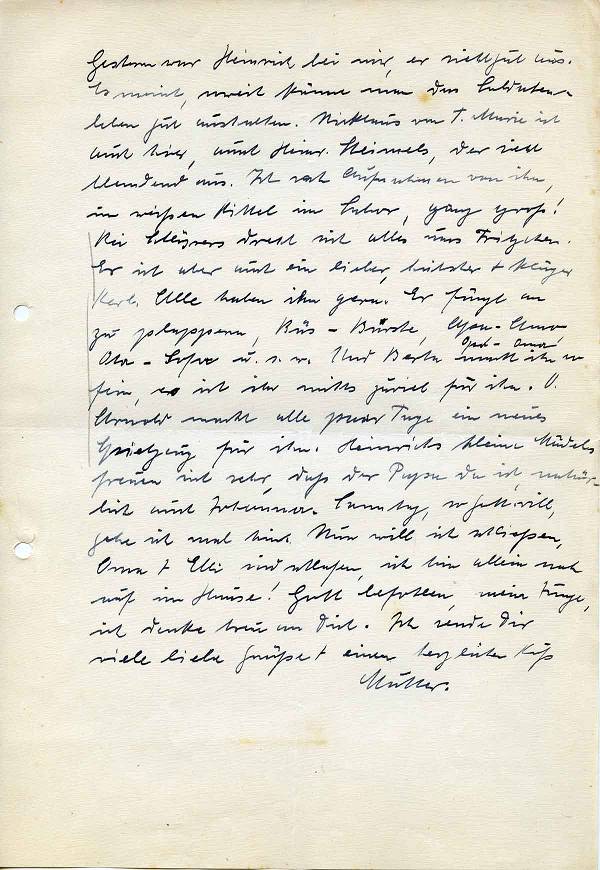 Gestern war Heinrich bei mir, er sieht gut aus.
Er meint, soweit könne man das Soldaten-
leben gut aushalten. Nicklaus von T. Marie ist
auch hier, auch Heinr. Heimels, der sieht
blendend aus. Ich sah Aufnahmen von ihm,
im weißen Kittel im Labor, ganz groß!
Bei dreht sich alles ums Fritzchen.
Er ist aber auch ein lieber, hübscher + kluger
Kerl. Alle haben ihn gern. Er fängt an
zu plappern, Büs - Bürste, Apa - Ama
Opa - Oma
Ofa - Sofa u. s. w. Und Berta macht ihn so
fein, es ist ihr nichts zuviel für ihn. O.
Arnold macht alle paar Tage ein neues
Spielzeug für ihn. Heinrichs kleine Mädels
freuen sich sehr, daß der Papa da ist, natür-
lich auch Johanna. Samstag, so Gott will,
gehe ich mal hin. Nun will ich schließen,
Oma + Elli sind schlafen, ich bin allein noch
auf im Hause! Gott befohlen, mein Junge,
ich denke treu an Dich. Ich sende Dir
viele liebe Grüße + einen herzlichen Kuß
Mutter.